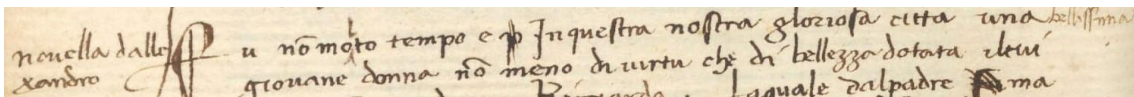 novella dalle
xandro
Fu nõ molto tempo e p In questra nostra gloriosa citta una bellissima
giovane donna nõ meno di virtu che di bellezza dotata il cui
laquale dal padre